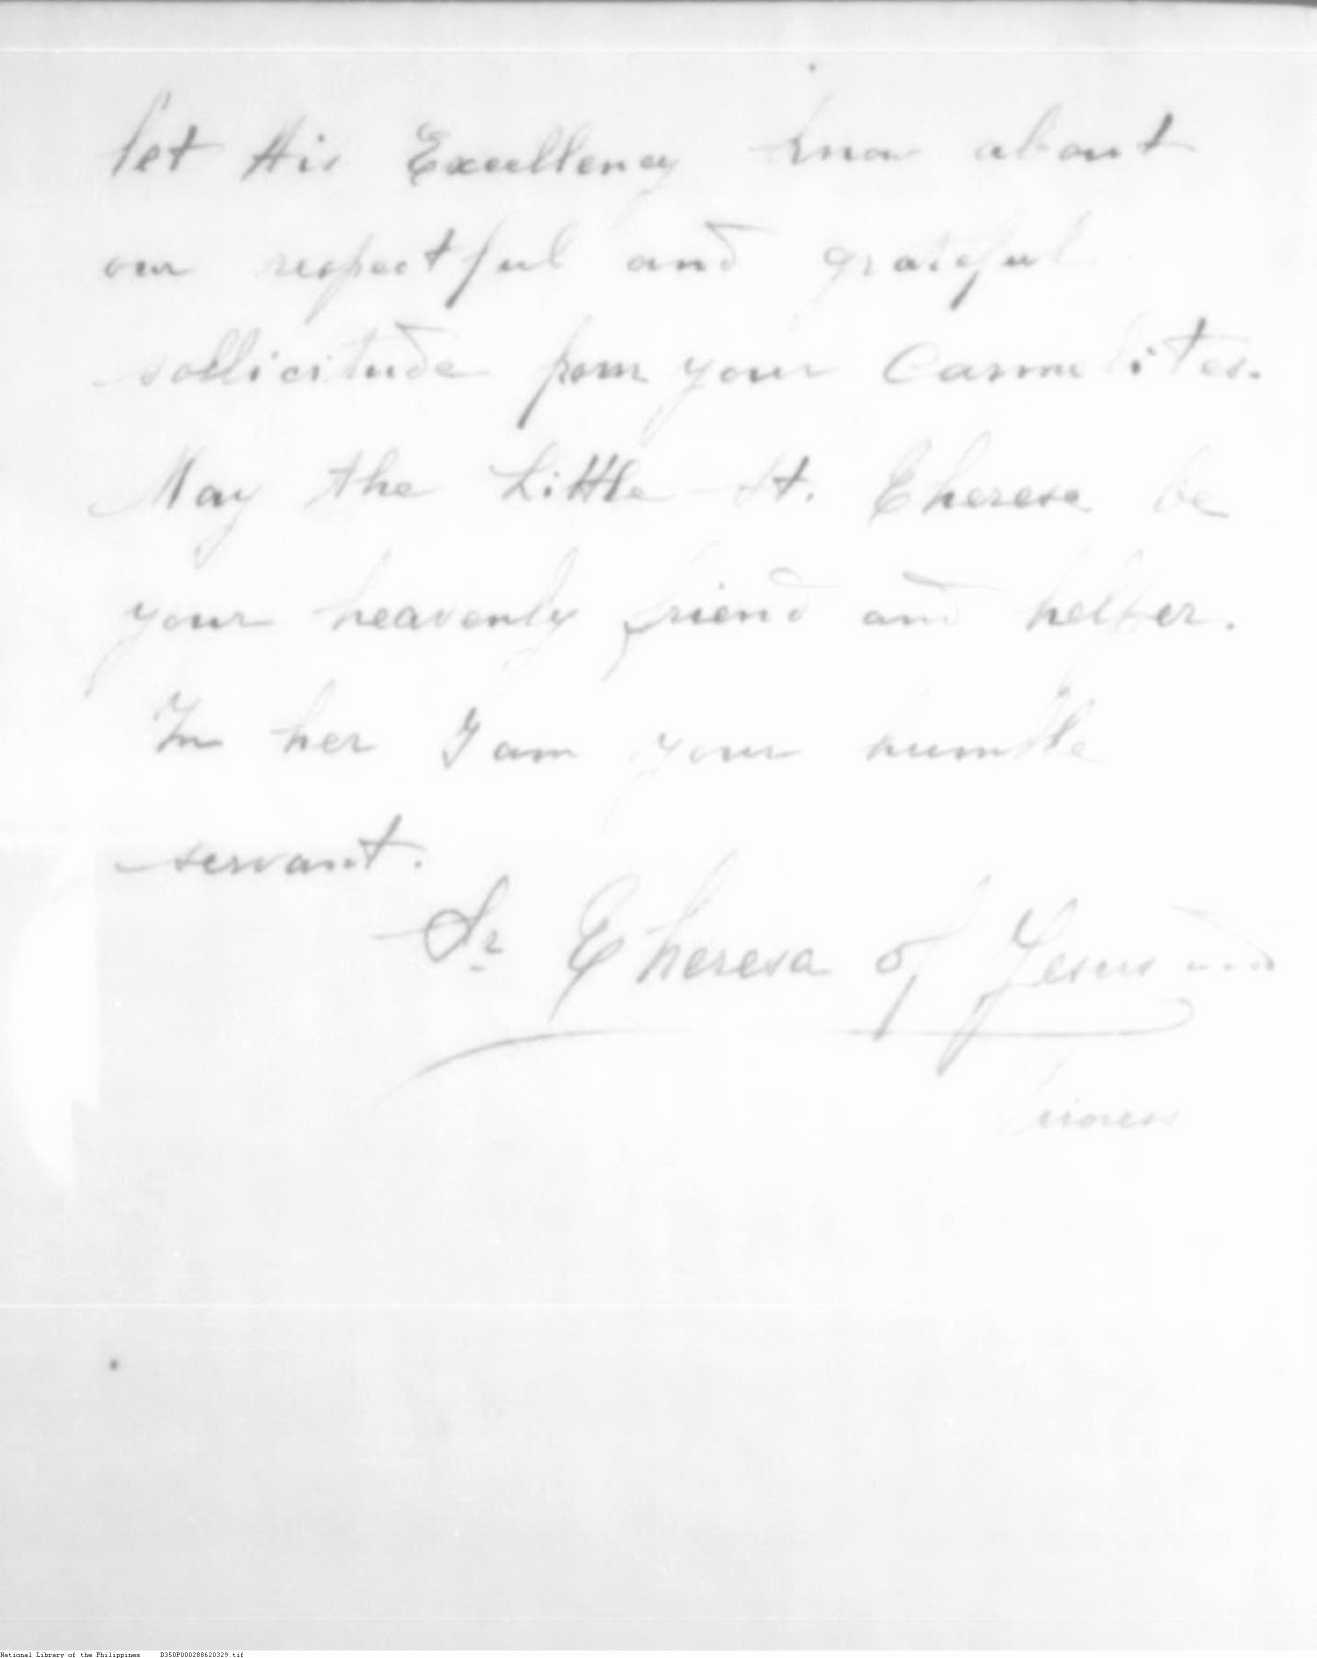 let His Excellency know about
our respectful and grateful
sollicitude from your Carmelites.
May the Little St. Therese be
your heavenly friend and helper.
In her I am your humble
servant.
Sr Theresa of Jesus and
National Library of the Philippines D350P000288620329.tif